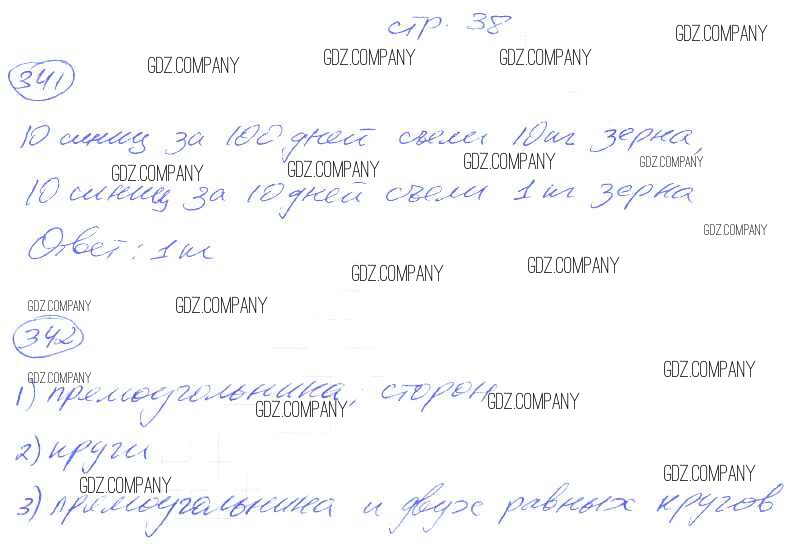 стр. 38
GDZ.COMPANY
GDZ.COMPANY GDZ.COMPANY GDZ.COMPANY
341
10 синиц за 100 дней съели 10 кг зерна,
GDZ.COMPANY GDZ.COMPANY GDZ.COMPANY GDZ.COMPANY
10 синиц за 10 дней съели 1 кг зерна
GDZ.COMPANY
Ответ: 1 кг
GDZ.COMPANY GDZ.COMPANY
GDZ.COMPANY GDZ.COMPANY
342
GDZ.COMPANY GDZ.COMPANY
1) прямоугольника, сторон
GDZ.COMPANY GDZ.COMPANY
2) круги
GDZ.COMPANY GDZ.COMPANY
3) прямоугольника и двух равных кругов